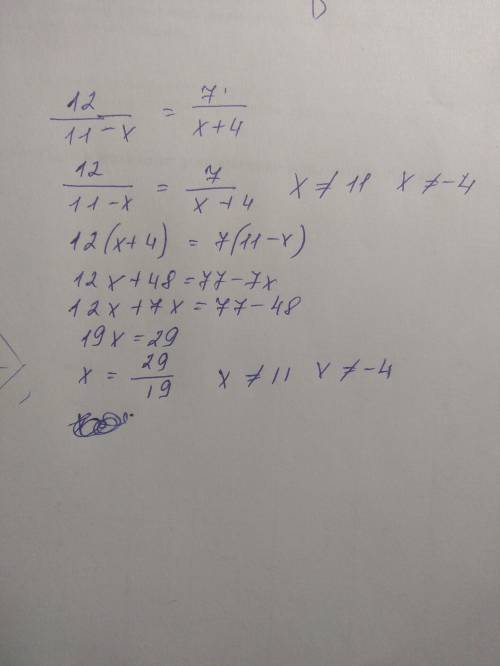 12/(11-x) = 7/(x+4)
12/(11-x) = 7/(x+4) x≠11 x≠-4
12(x+4) = 7(11-x)
12x+48=77-7x
12x+7x=77-48
19x=29
x = 29/19 x≠11 x≠-4